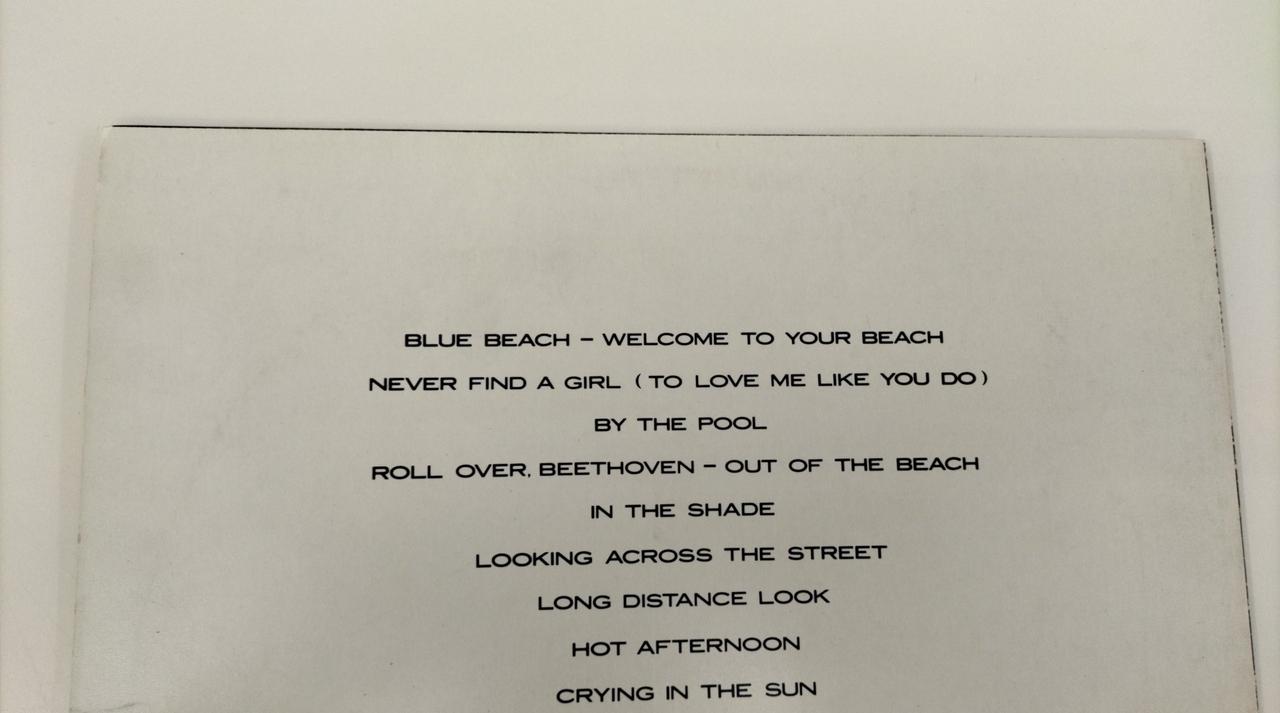 BLUE BEACH – WELCOME TO YOUR BEACH
NEVER FIND A GIRL (TO LOVE ME LIKE YOU DO)
BY THE POOL
ROLL OVER, BEETHOVEN – OUT OF THE BEACH
IN THE SHADE
LOOKING ACROSS THE STREET
LONG DISTANCE LOOK
HOT AFTERNOON
CRYING IN THE SUN